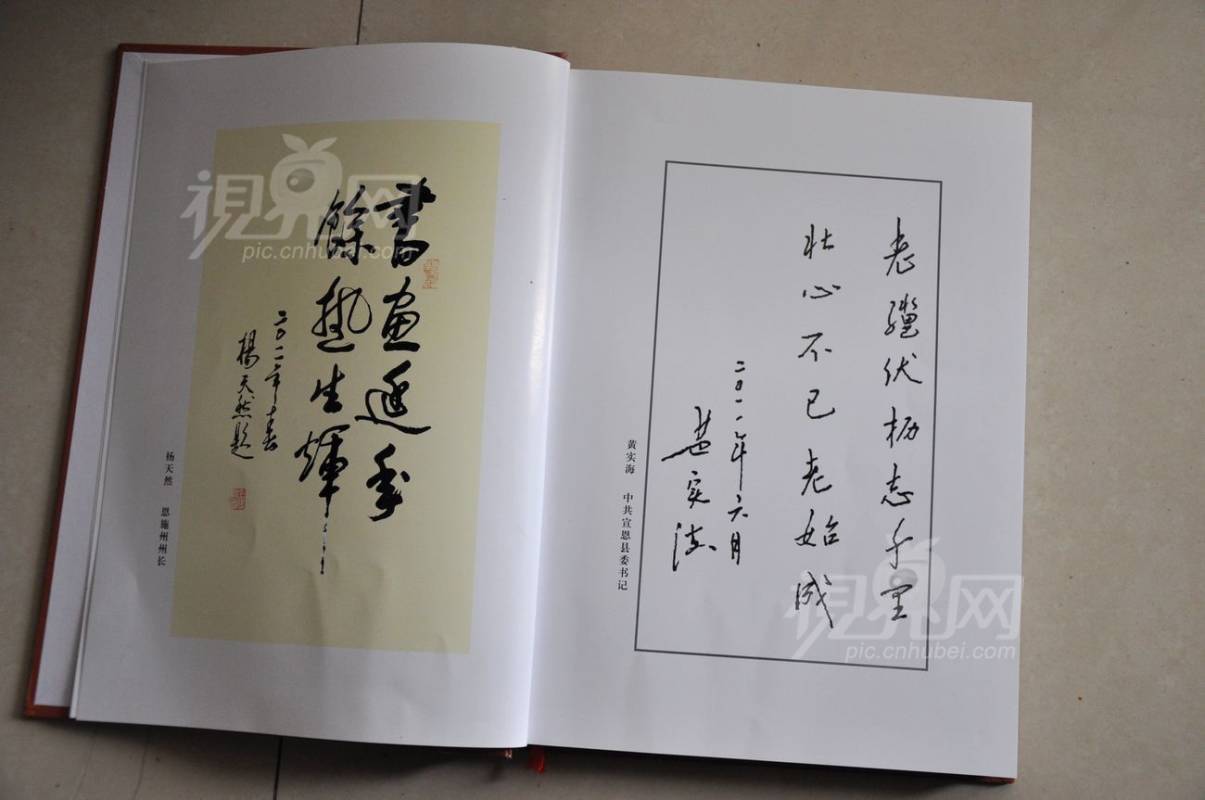 書画延年
餘熱生輝
二〇一一年春
楊天然題
杨天然 恩施州州长
老骥伏枥志千里
壮心不已老始成
二〇一一年六月
黄实海
黄实海 中共宣恩县委书记
視界网
pic.cnhubei.com
視界网
pic.cnhubei.com